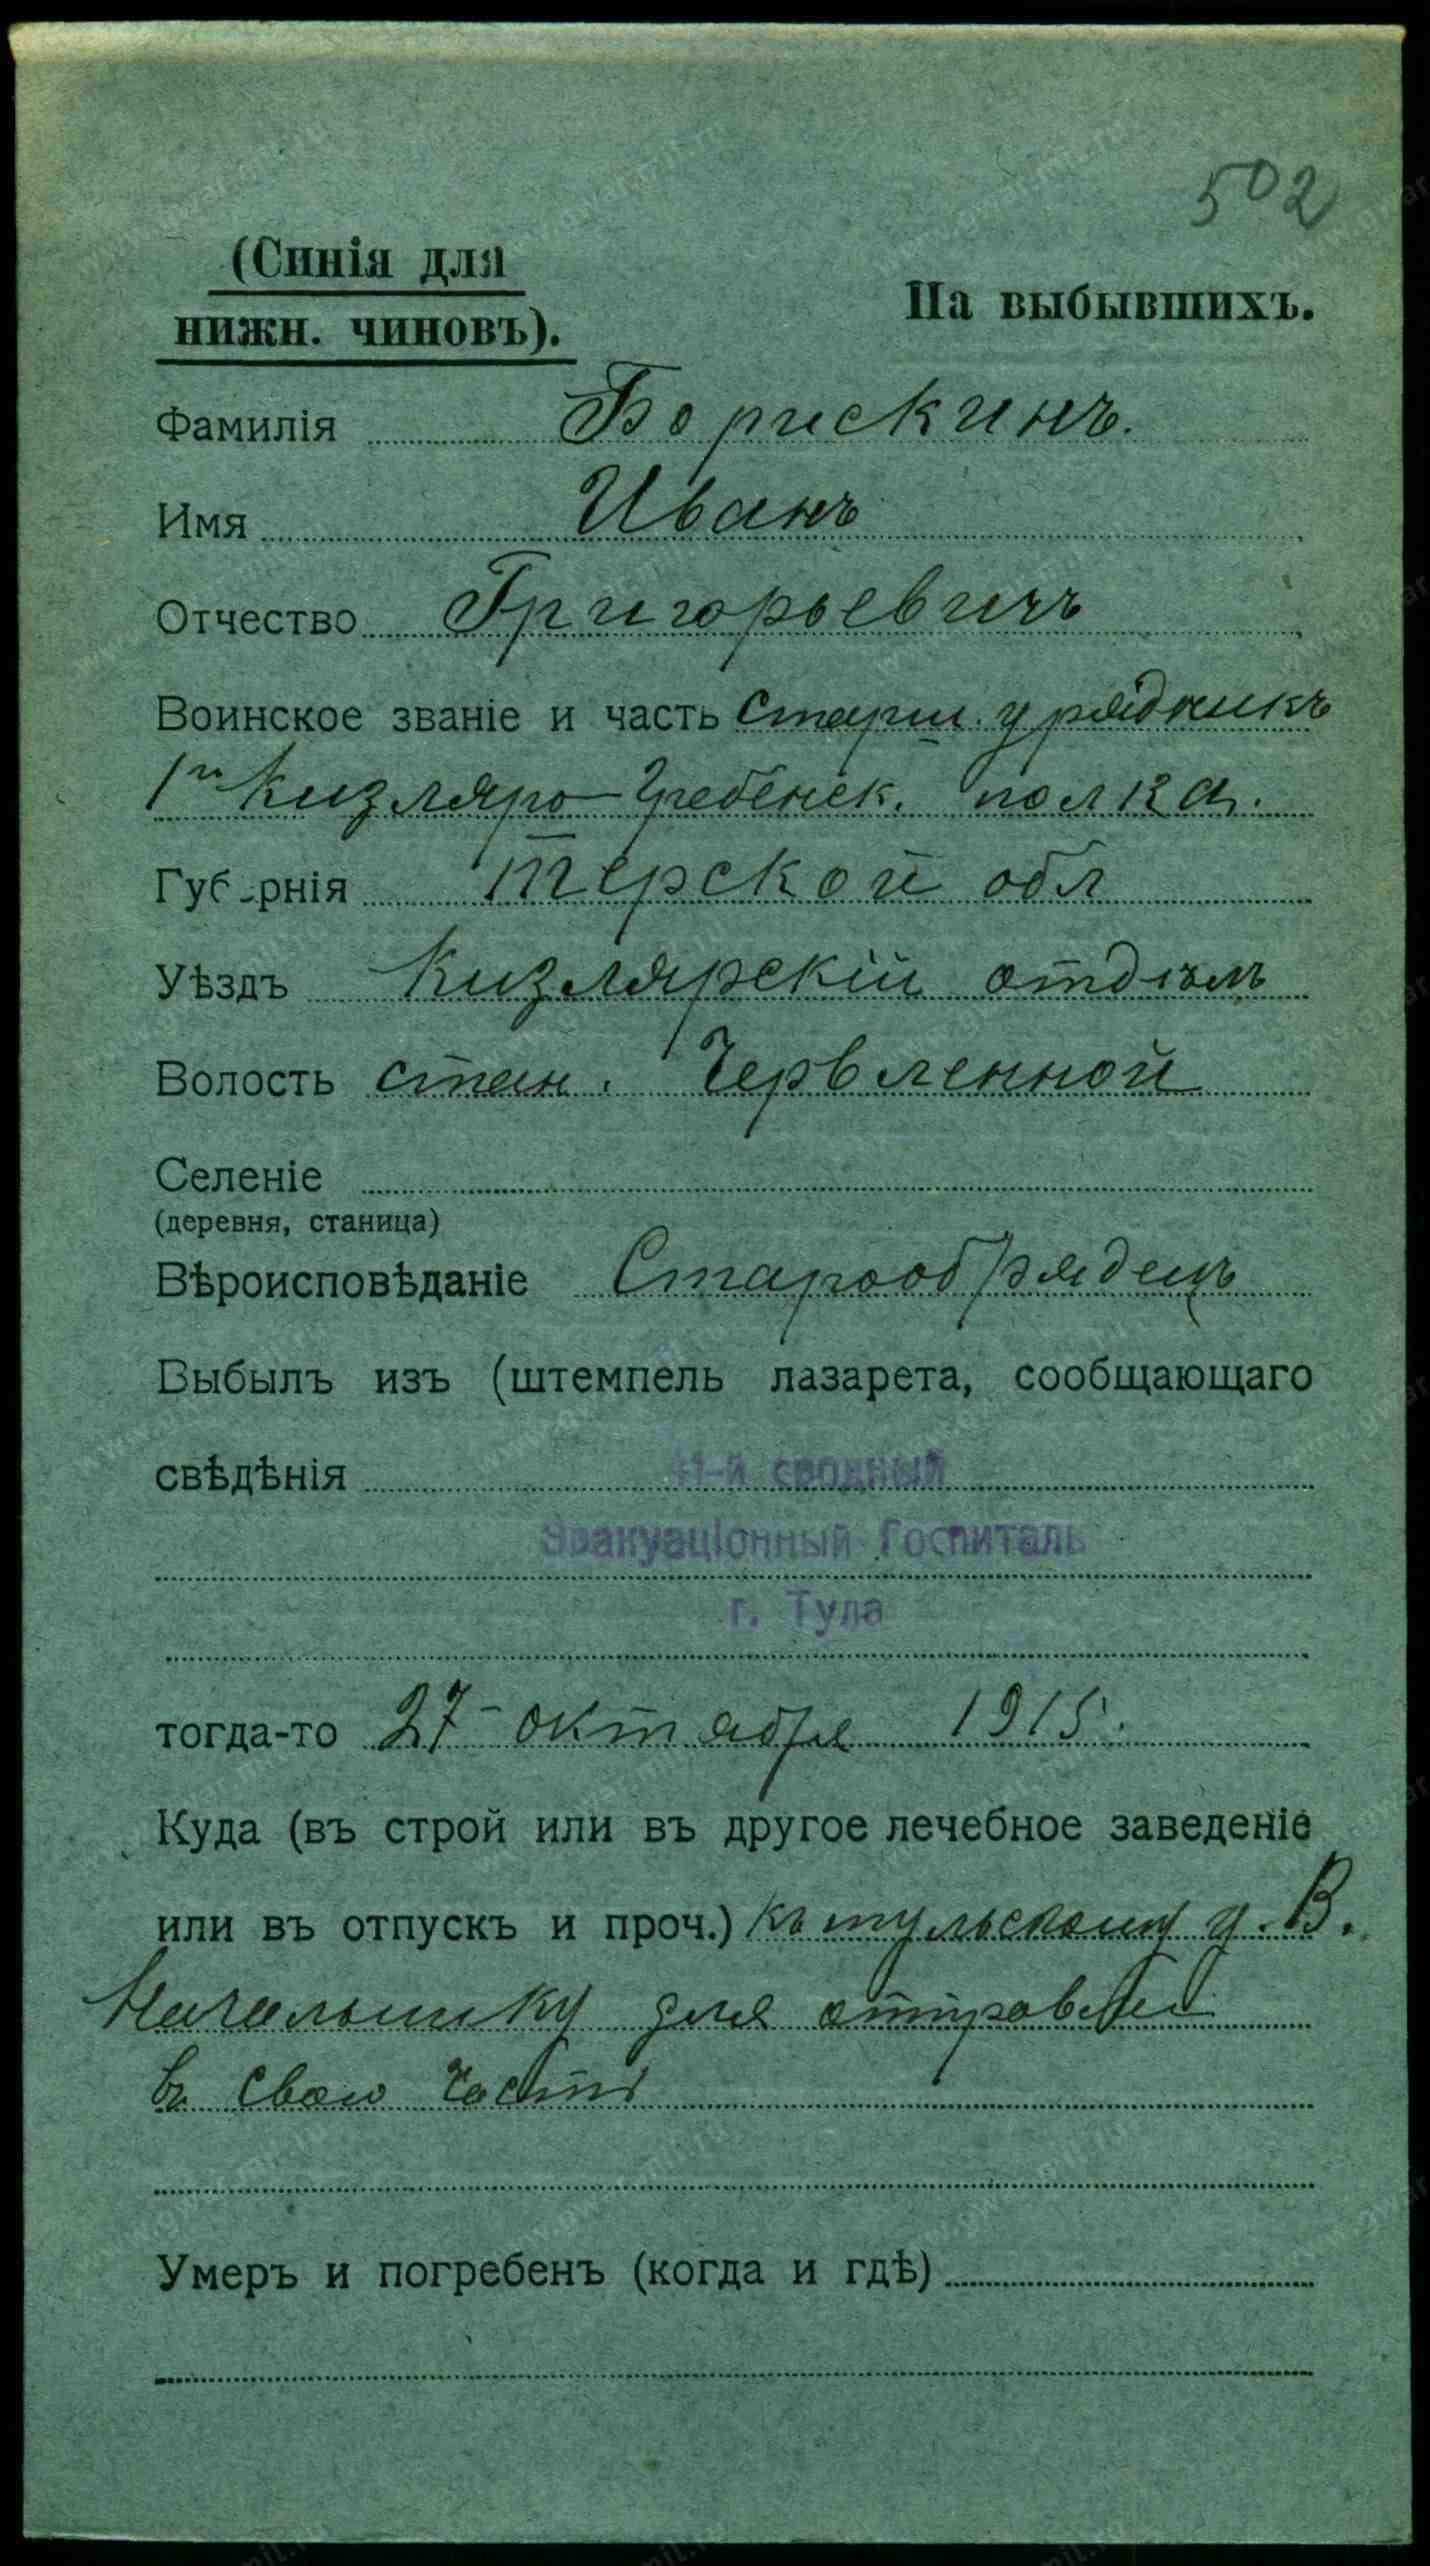 502
(Синія для
нижн. чиновъ).
На выбывшихъ.
Фамилія Борискинъ.
Имя Иванъ
Отчество Григорьевичъ
Воинское званіе и часть Старш. урядникъ
1го Кизляро-Гребенск. полка.
Губернія Терской обл
Уѣздъ Кизлярскій отдѣлъ
Волость стан. Червленной
Селеніе
(деревня, станица)
Вѣроисповѣданіе Старообрядецъ
Выбылъ изъ (штемпель лазарета, сообщающаго
свѣдѣнія
1-й сводный
Эвакуаціонный Госпиталь
г. Тула
тогда-то 27 октября 1915.
Куда (въ строй или въ другое лечебное заведеніе
или въ отпускъ и проч.) Къ тульскому у. В.
Начальнику для отправлен
въ свою часть
Умеръ и погребенъ (когда и гдѣ)